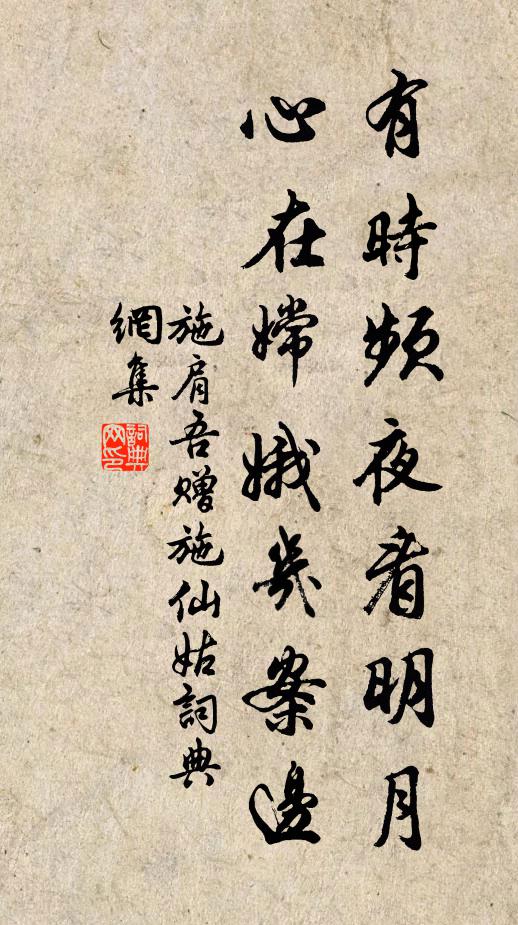 有時頻夜看明月
心在嫦娥几案邊
施肩吾贈施仙姑詞典
網集
詞典
网印